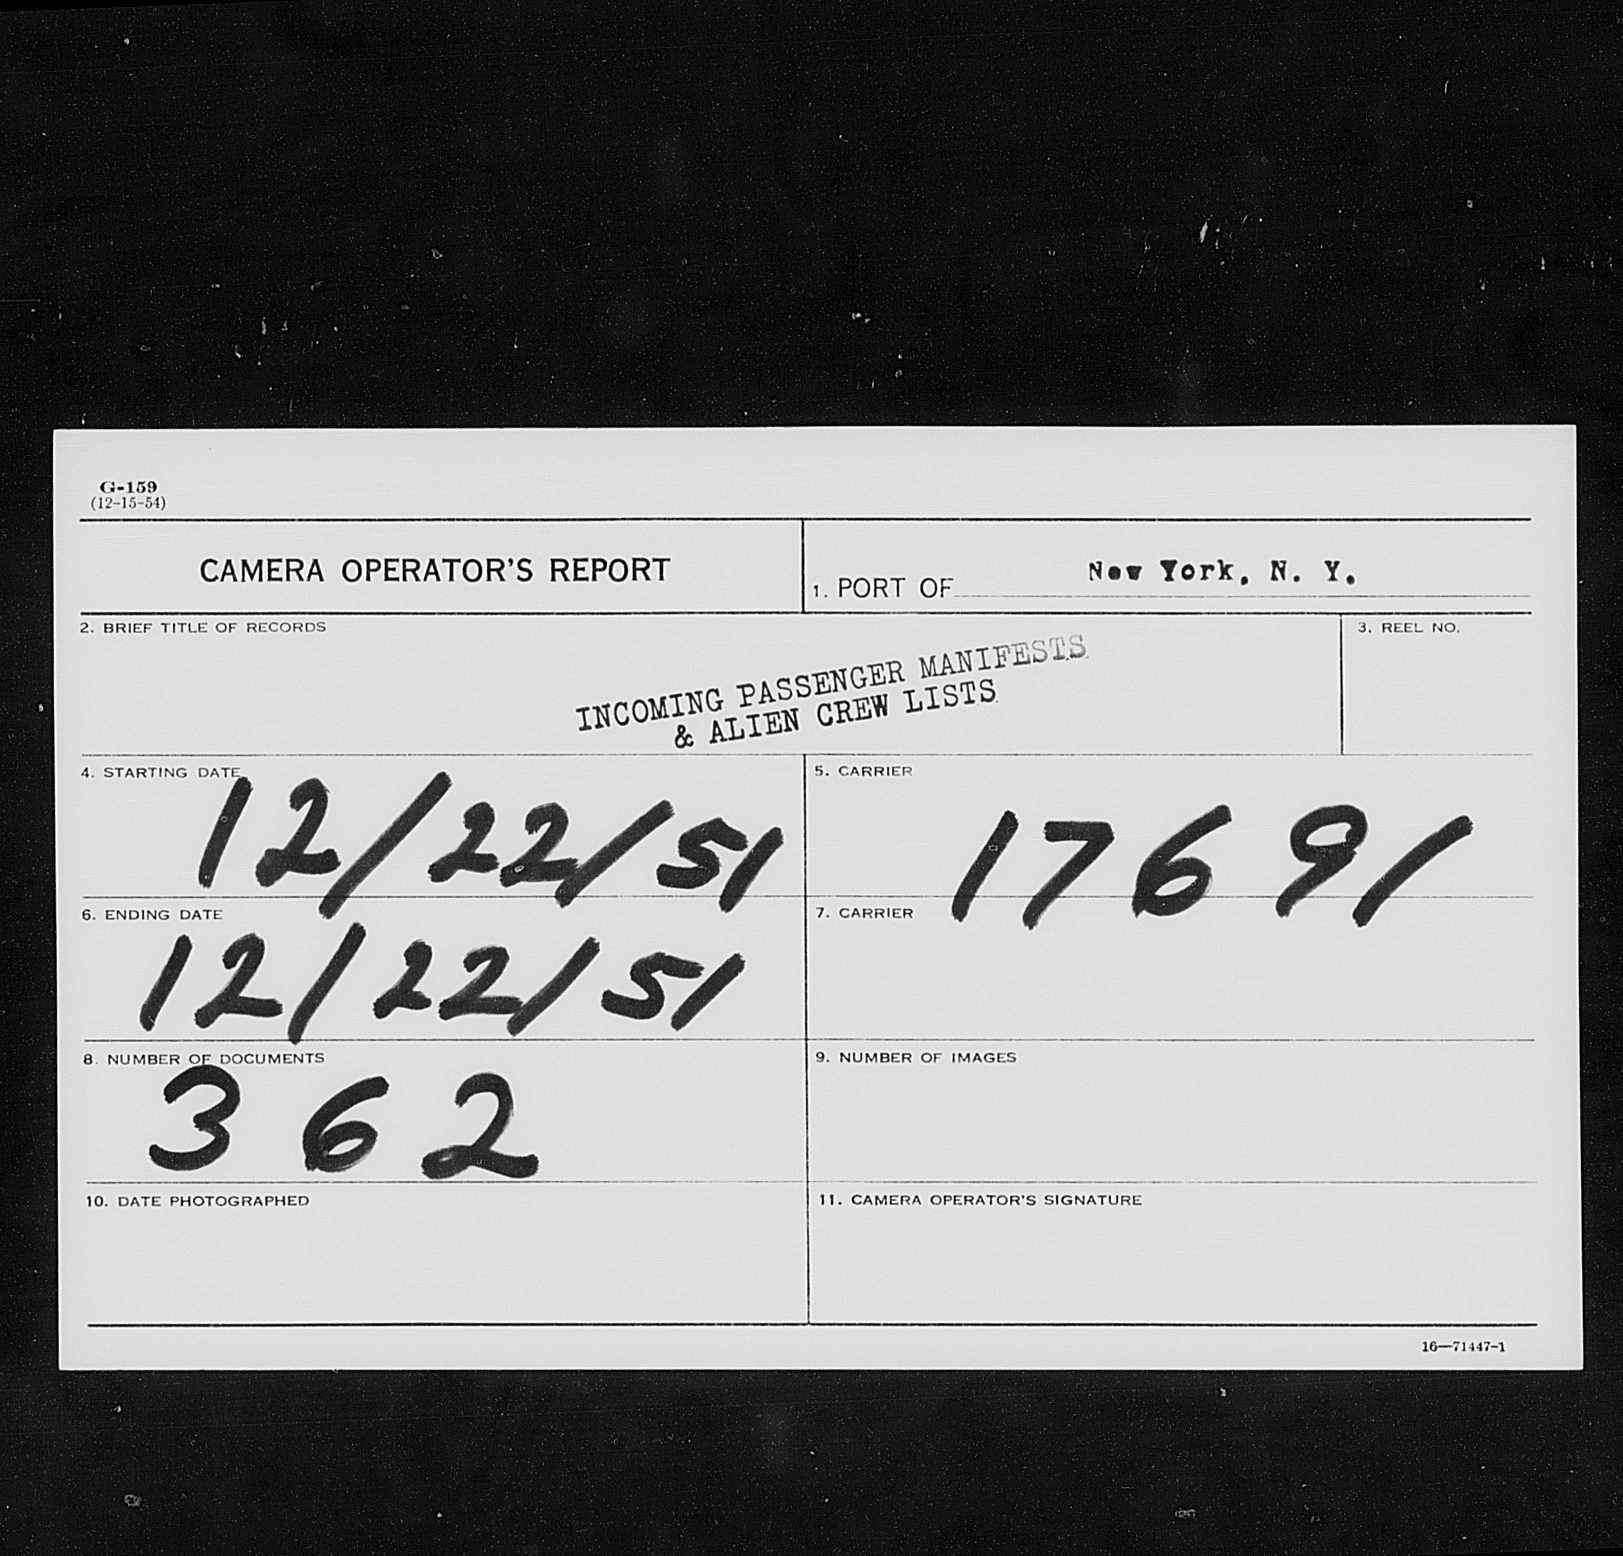 G-159
(12-15-54)
CAMERA OPERATOR'S REPORT
1. PORT OF New York, N. Y.
2. BRIEF TITLE OF RECORDS
3. REEL NO.
INCOMING PASSENGER MANIFESTS
& ALIEN CREW LISTS
4. STARTING DATE
12/22/51
5. CARRIER
17691
6. ENDING DATE
12/22/51
7. CARRIER
8. NUMBER OF DOCUMENTS
362
9. NUMBER OF IMAGES
10. DATE PHOTOGRAPHED
11. CAMERA OPERATOR'S SIGNATURE
16—71447-1